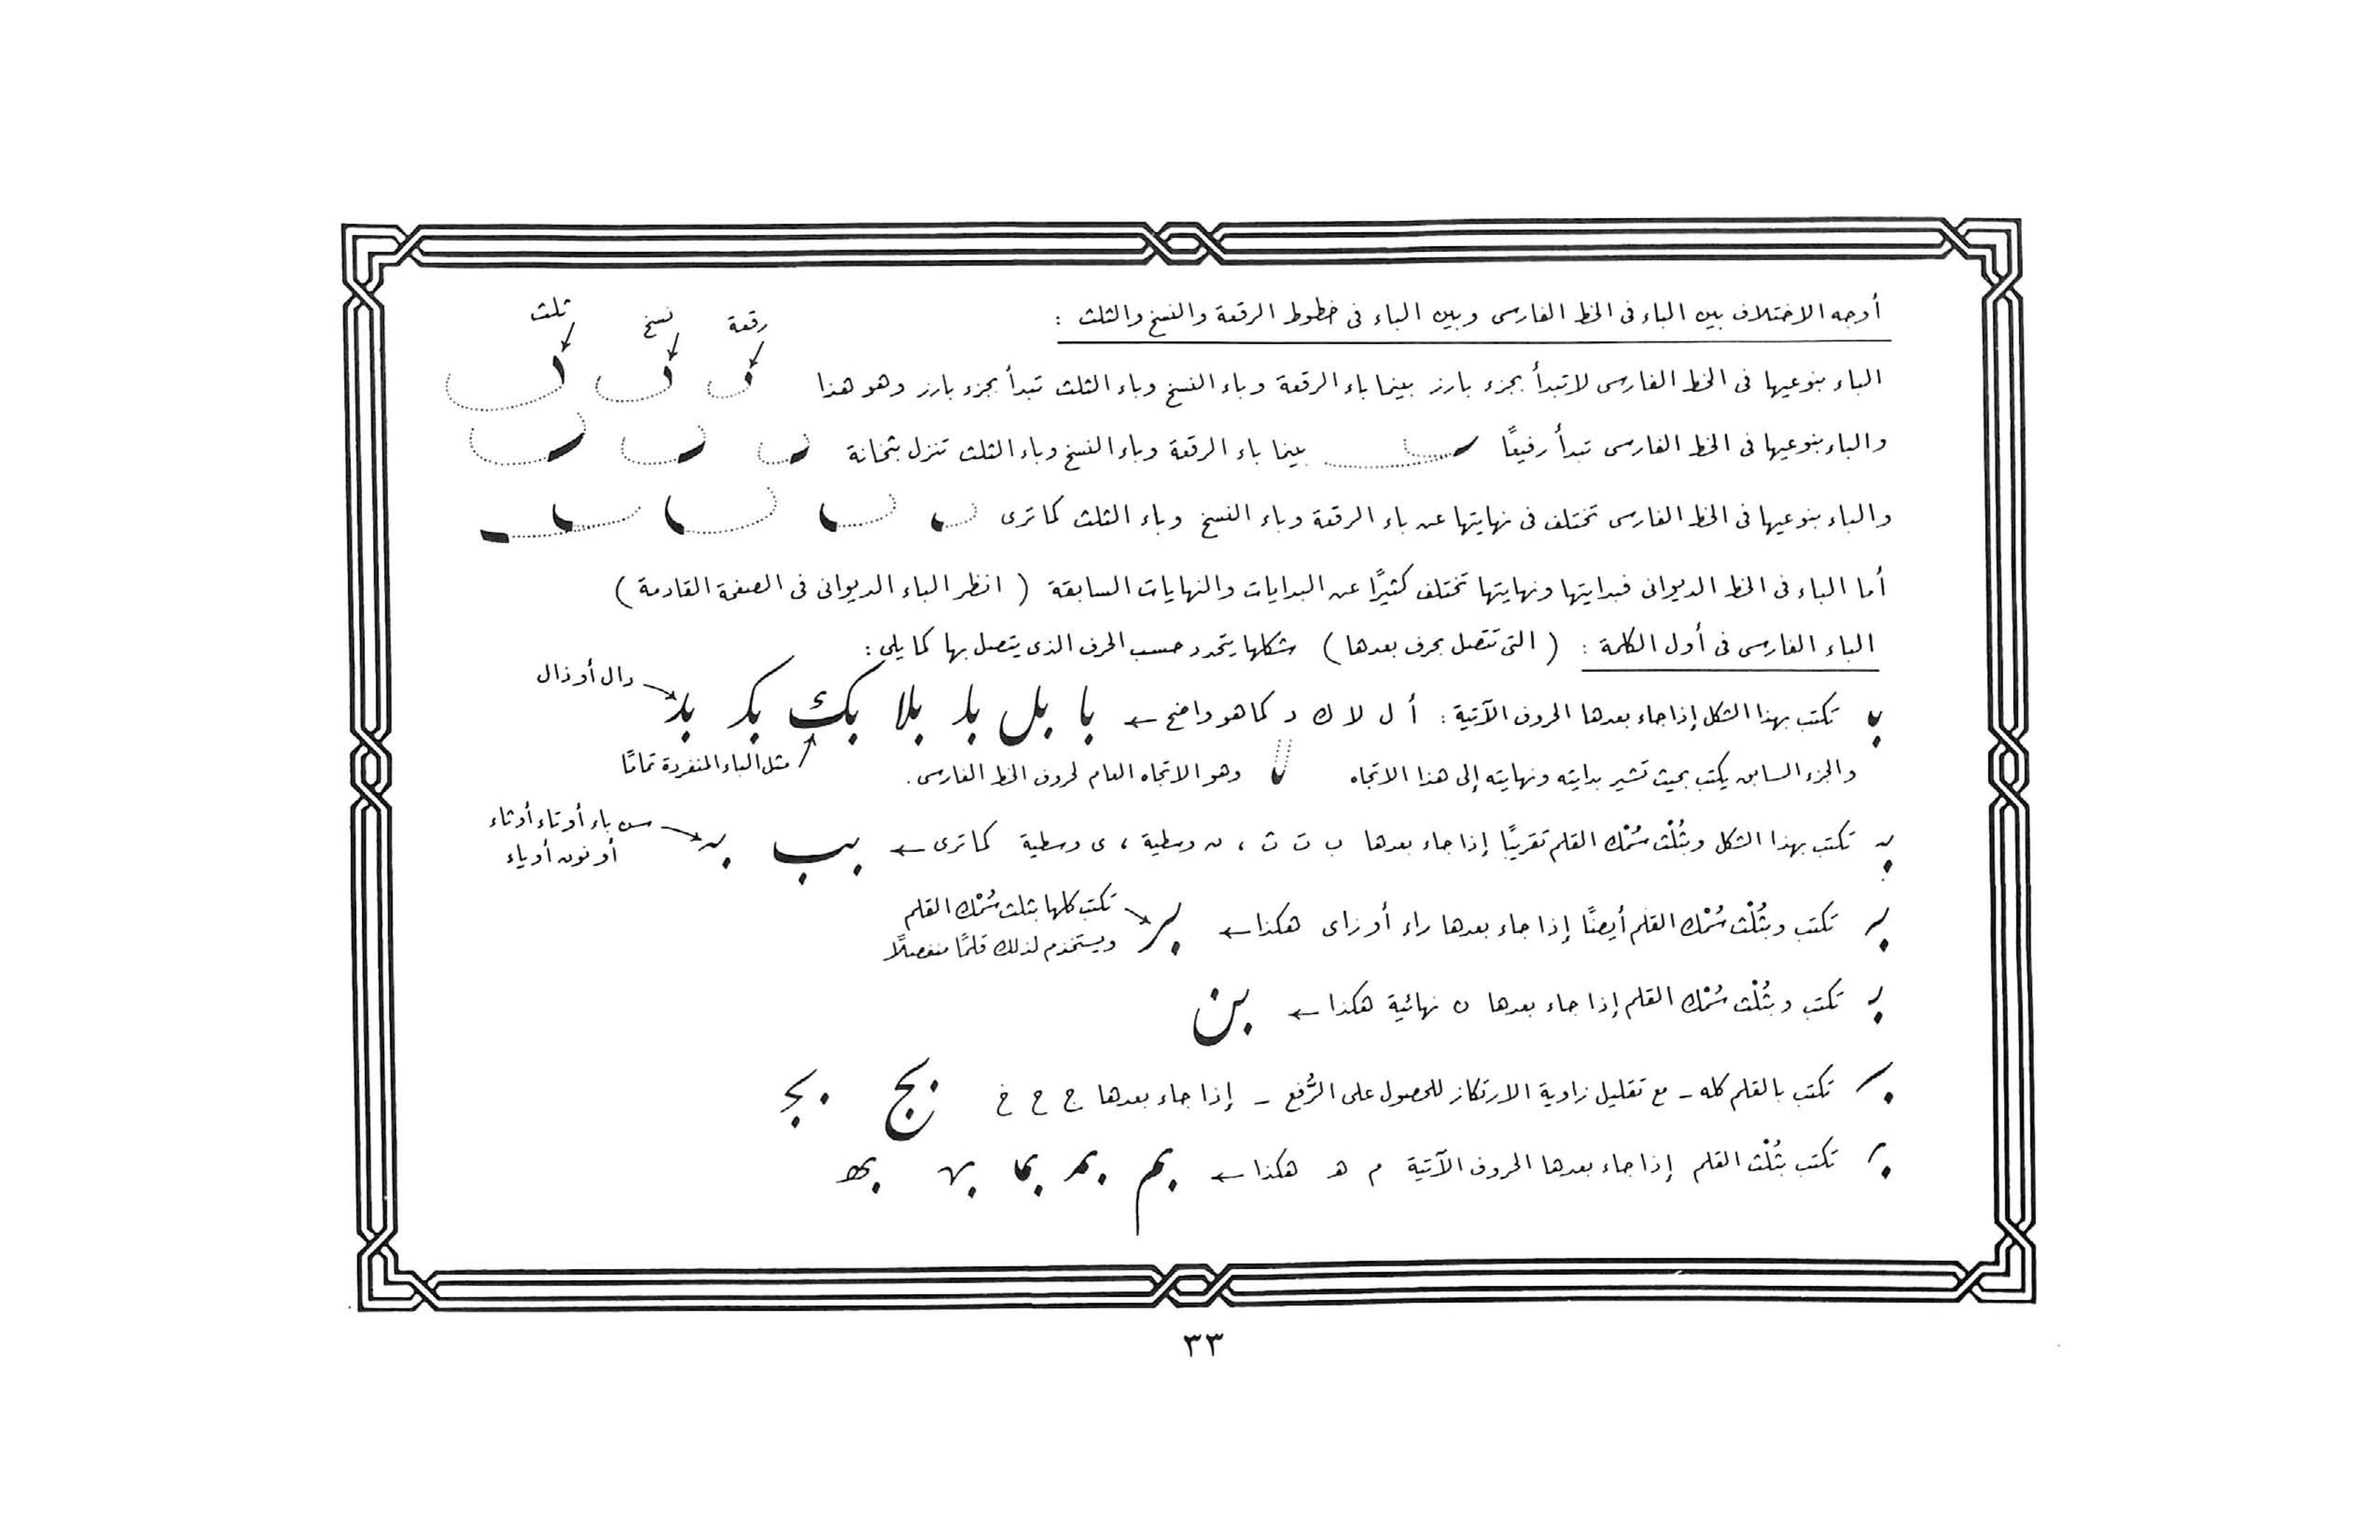 أوجه الاختلاف بين الباء فى الخط الفارسى وبين الباء فى خطوط الرقعة والنسخ والثلث :
رقعة نسخ ثلث
الباء بنوعيها فى الخط الفارسى لا تبدأ بجزء بارز بينما باء الرقعة وباء النسخ وباء الثلث تبدأ بجزء بارز وهو هذا
والباء بنوعيها فى الخط الفارسى تبدأ رفيعًا بينما باء الرقعة وباء النسخ وباء الثلث تنزل بثخانة
والباء بنوعيها فى الخط الفارسى تختلف فى نهايتها عن باء الرقعة وباء النسخ وباء الثلث كما ترى
أما الباء فى الخط الديوانى فبدايتها ونهايتها تختلف كثيرًا عن البدايات والنهايات السابقة ( انظر الباء الديوانى فى الصفحة القادمة )
الباء الفارسى فى أول الكلمة : ( التى تتصل بحرف بعدها ) شكلها يتحدد حسب الحرف الذى يتصل بها كما يلى :
تكتب بهذا الشكل إذا جاء بعدها الحروف الآتية : أ ل لا ك د كما هو واضح ← با بل بد بلا بك بكـ بد
دال أو ذال
والجزء السابق يكتب بحيث تشير بدايته ونهايته إلى هذا الاتجاه وهو الاتجاه العام لحروف الخط الفارسى .
مثل الباء المنفردة تمامًا
تكتب بهذا الشكل وبثُلْث سُمْك القلم تقريبًا إذا جاء بعدها ب ت ث ، ن وسطية ، ى وسطية كما ترى ← بب ببـ
سن باء أو تاء أو ثاء
أو نون أو ياء
تكتب وبثُلْث سُمْك القلم أيضًا إذا جاء بعدها راء أو زاى هكذا ← بر
تكتب كلها بثلث سُمْك القلم
ويستخدم لذلك قلمًا منفصلًا
تكتب وبثُلْث سُمْك القلم إذا جاء بعدها ن نهائية هكذا ← بن
تكتب بالقلم كله - مع تقليل زاوية الارتكاز للحصول على الرُّفع - إذا جاء بعدها ج ح خ بح بجـ
تكتب بثُلْث القلم إذا جاء بعدها الحروف الآتية م هـ هكذا ← بم بمـ بما بهـ بهـ
٣٣